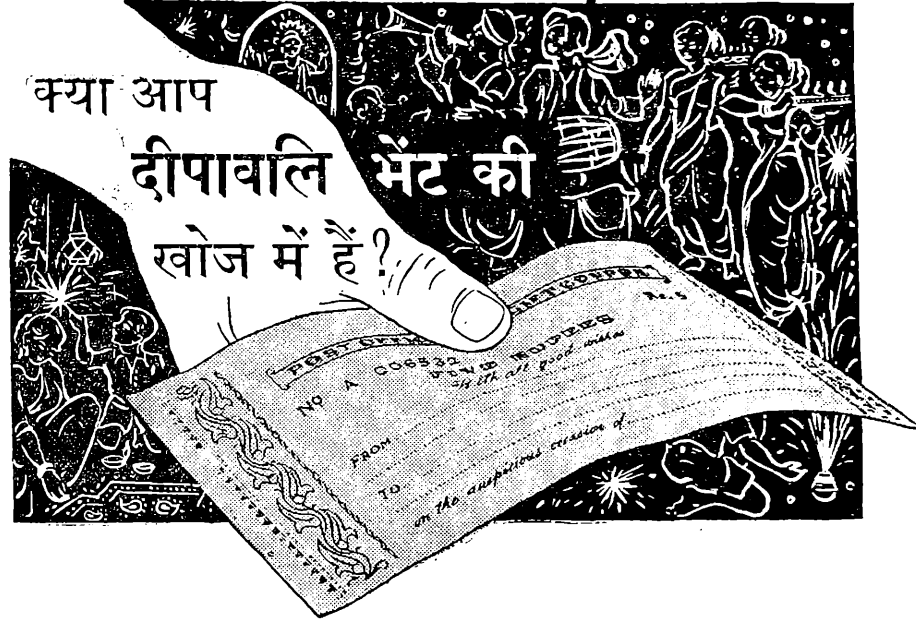 क्या आप
दीपावलि भेंट की
खोज में हैं?
POST OFFICE GIFT COUPON
Rs. 5
No A 006532
FIVE RUPEES
With all good wishes
FROM
TO
on the auspicious occasion of